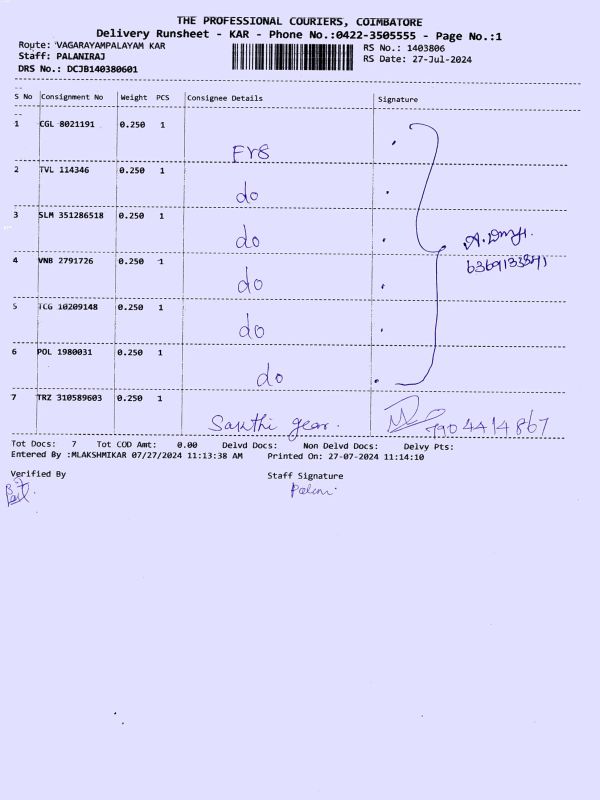 THE PROFESSIONAL COURIERS, COIMBATORE
Delivery Runsheet - KAR - Phone No.:0422-3505555 - Page No.:1
Route: VAGARAYAMPALAYAM KAR
RS No.: 1403806
Staff: PALANIRAJ
RS Date: 27-Jul-2024
DRS No.: DCJB140380601
S No Consignment No Weight PCS Consignee Details Signature
1 CGL 8021191 0.250 1
2 TVL 114346 0.250 1
do
3 SLM 351286518 0.250 1
do
4 VNB 2791726 0.250 1
do
5 TCG 10209148 0.250 1
do
6 POL 1980031 0.250 1
do
7 TRZ 310589603 0.250 1
Santhi gear. 7904414867
Tot Docs: 7 Tot COD Amt: 0.00 Delvd Docs: Non Delvd Docs: Delvy Pts:
Entered By :MLAKSHMIKAR 07/27/2024 11:13:38 AM Printed On: 27-07-2024 11:14:10
Verified By Staff Signature